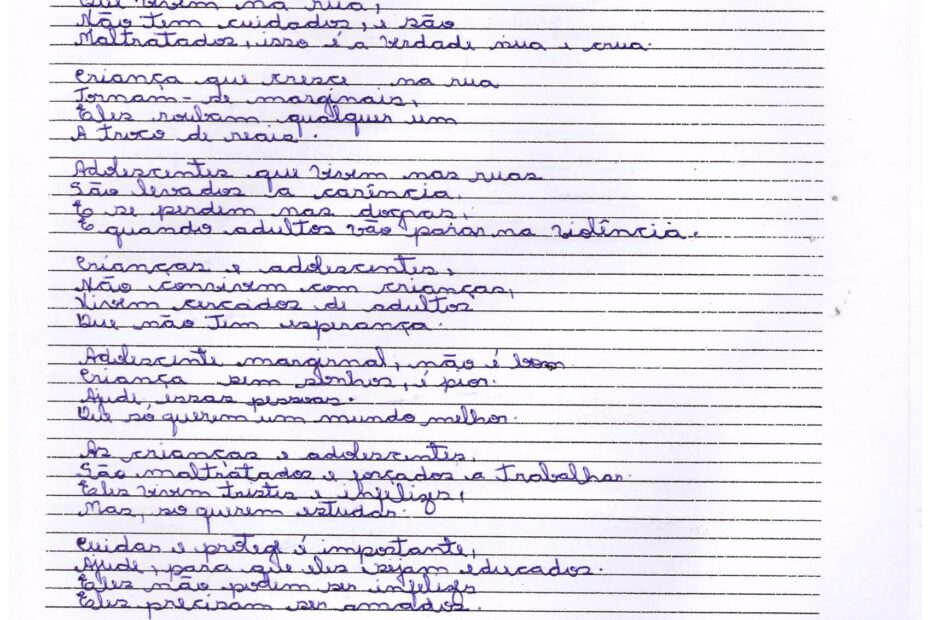 Que vivem na rua,
Não tem cuidados, e são
Maltratados, isso é a verdade nua e crua.
Criança que cresce na rua
Tornam-se marginais,
Eles roubam qualquer um
A troco de reais.
Adolescentes que vivem nas ruas
São levados a carência.
E se perdem nas drogas,
E quando adultos vão parar na violência.
Crianças e adolescentes,
Não convivem com crianças,
Vivem cercados de adultos
Que não tem esperança.
Adolescente marginal, não é bom
Criança sem sonhos, é pior.
Ajude, essas pessoas.
Que só querem um mundo melhor.
As crianças e adolescentes,
São maltratados e forçados a trabalhar.
Eles vivem tristes e infelizes,
Mas, só querem estudar.
Cuidar e protege é importante,
Ajude, para que eles sejam educados.
Eles não podem ser infelizes
Eles precisam ser amados.